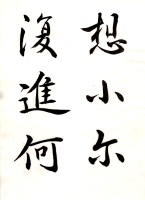 想小尔
復進何